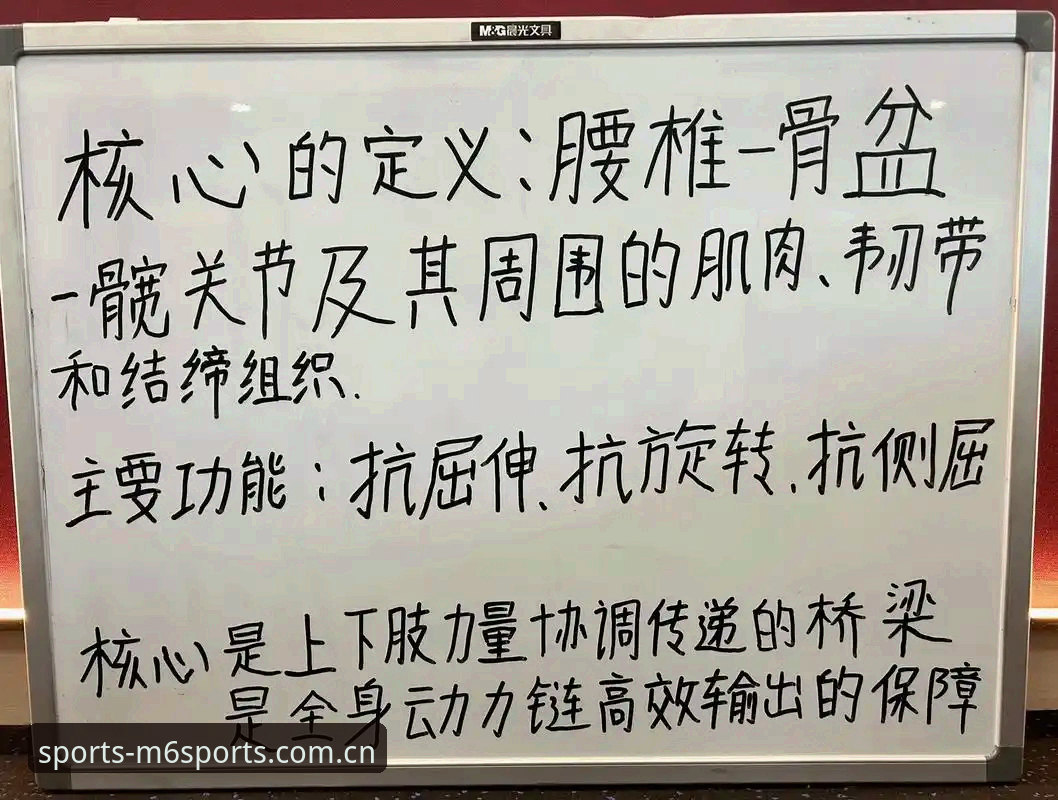 M&G晨光文具
核心的定义:腰椎-骨盆
-髋关节及其周围的肌肉、韧带
和结缔组织.
主要功能:抗屈伸、抗旋转、抗侧屈
核心是上下肢力量协调传递的桥梁
是全身动力链高效输出的保障
sports-m6sports.com.cn